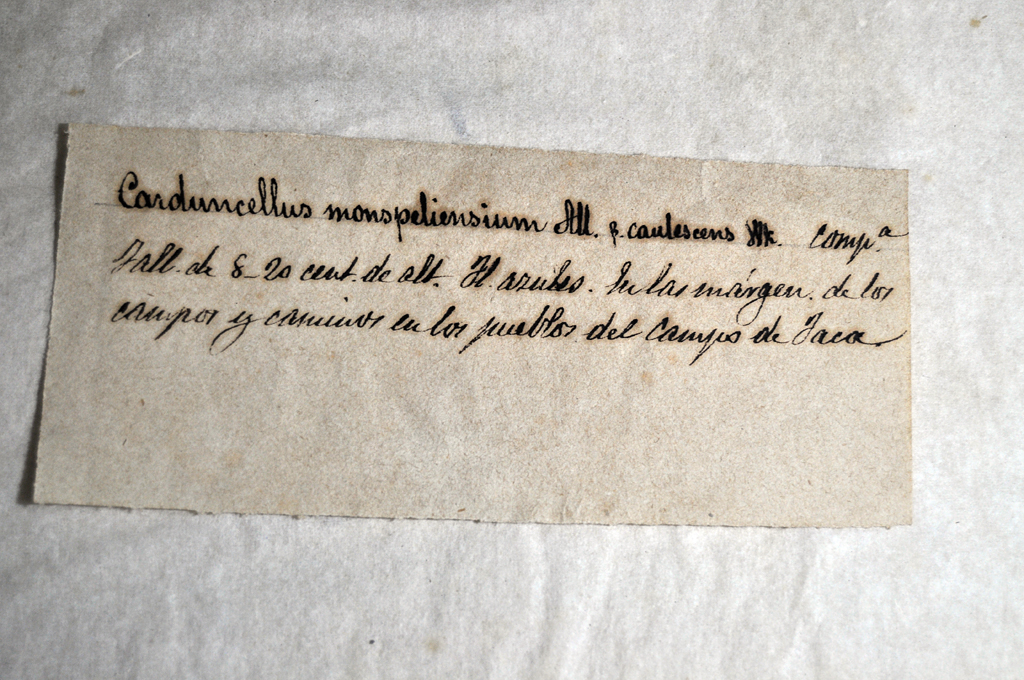 Carduncellus monspeliensium All. β. caulescens Wk. Compª
Tall. de 8-20 cent. de alt. Fl. azules. En las márgen. de los
campos y caminos en los pueblos del Campo de Jaca